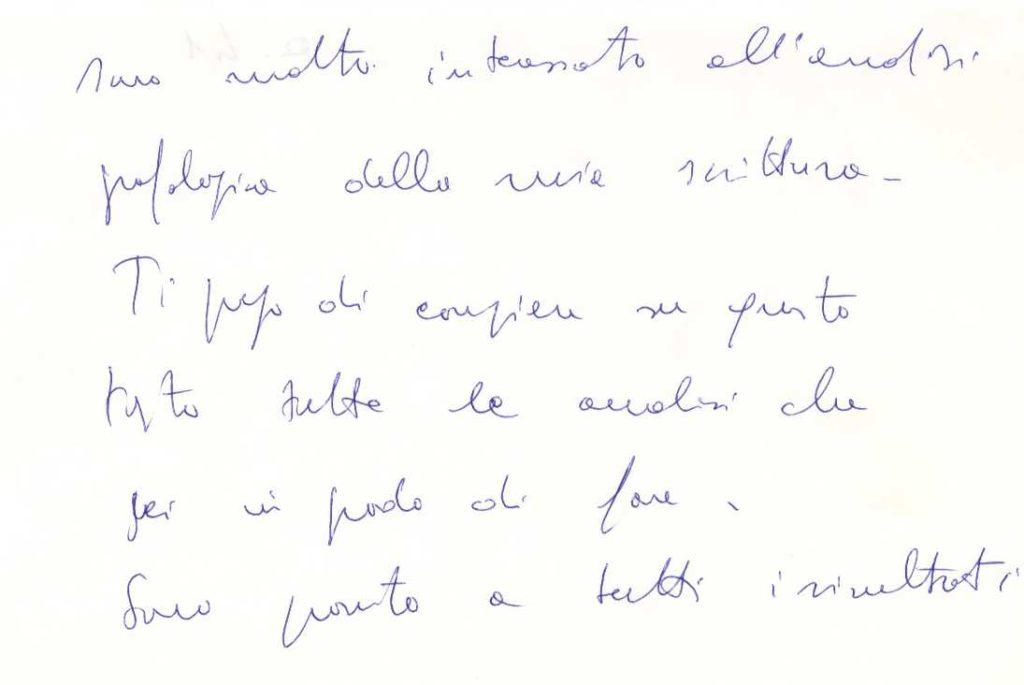 sono molto interessato all'analisi
grafologica della mia scrittura -
Ti prego di compiere su questo
testo tutte le analisi che
sei in grado di fare.
Sono pronto a tutti i risultati